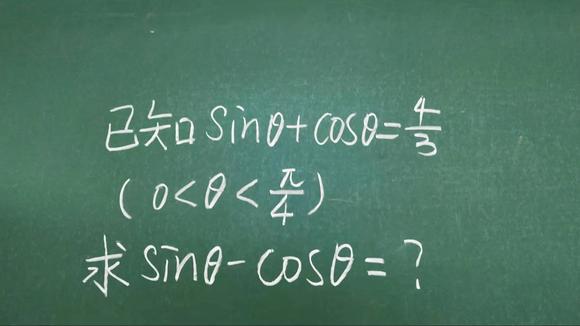 已知sinθ+cosθ=4/3
(0<θ<π/4)
求sinθ-cosθ=?